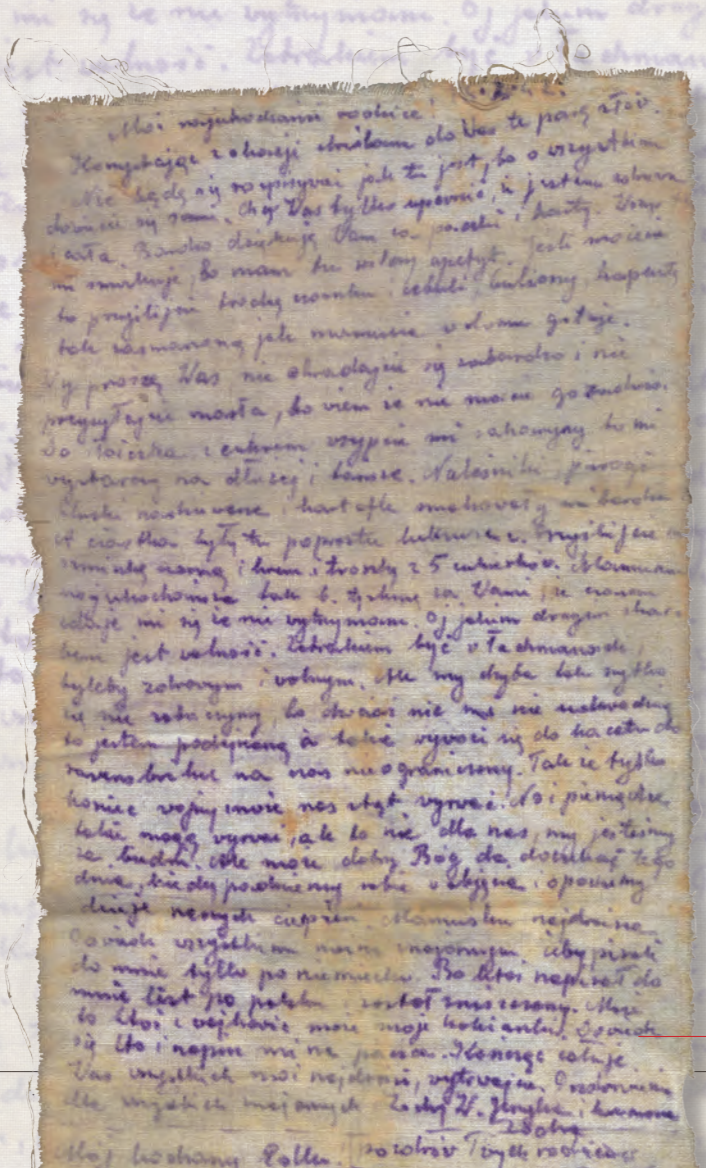 Moi najukochańsi rodzice!
Korzystając z okazji skreślam do Was te parę słów.
Nie będę się rozpisywać jak tu jest, bo o wszystkim
dowiecie się sami. Chcę Was tylko upewnić, że jestem zdrowa
i cała. Bardzo dziękuję Wam za paczki i karty.
mi smakuje, bo mam tu wilczy apetyt. Jeśli możecie
to przyślijcie trochę czosnku i cebuli, buliony, kapusty
tak zasmażaną jak mamusia w domu gotuje.
proszę Was, nie okradajcie się zabardzo i nie
przysyłajcie masła, bo wiem że nie macie go
Do cukrem wsypcie mi sacharyny to mi
wystarczy na dłużej i tańsze. Naleśniki, pirogi
kluski i kartofle smakowały mi bardzo
A ciastka były tu poprostu luksusem. Przyślijcie
szminkę czarną i krem i troszkę z 5 cukierków. Mamusiu
najukochańsza tak b. tęsknię za Wami, że czasem
zdaje mi się że nie wytrzymam. Oj jakim drogim skar-
bem jest wolność. być w łachmanach,
byleby zdrowym i wolnym. Ale my chyba tak szybko
się nie zobaczymy, bo chociaż nic mi nie udowodnią
to jestem podejrzaną a takie wywozi się do kacetu do
ravensbrück na czas nieograniczony. Tak że tylko
koniec wojny może nas stąd wyrwać. No i pieniądze
także mogą wyrwać, ale to nie dla nas, my jesteśmy
za biedni. Ale może dobry Bóg da, doczekać tego
dnia, kiedy padniemy sobie w objęcia i opowiemy
dzieje naszych cierpień. Mamusiu najdroższa
powiedz wszystkim znajomym żeby pisali
do mnie tylko po niemiecku. Bo ktoś napisał do
mnie list po polsku i został zniszczony. Może
to ktoś z Wejherowa może moje koleżanki. Dowiedz
się kto i napisz mi na Kończąc całuję
Was wszystkich moi najdrożsi, wytrwajcie. Pozdrowienia
dla wszystkich znajomych
Zosia
Mój kochany Pozdrów Twych rodziców